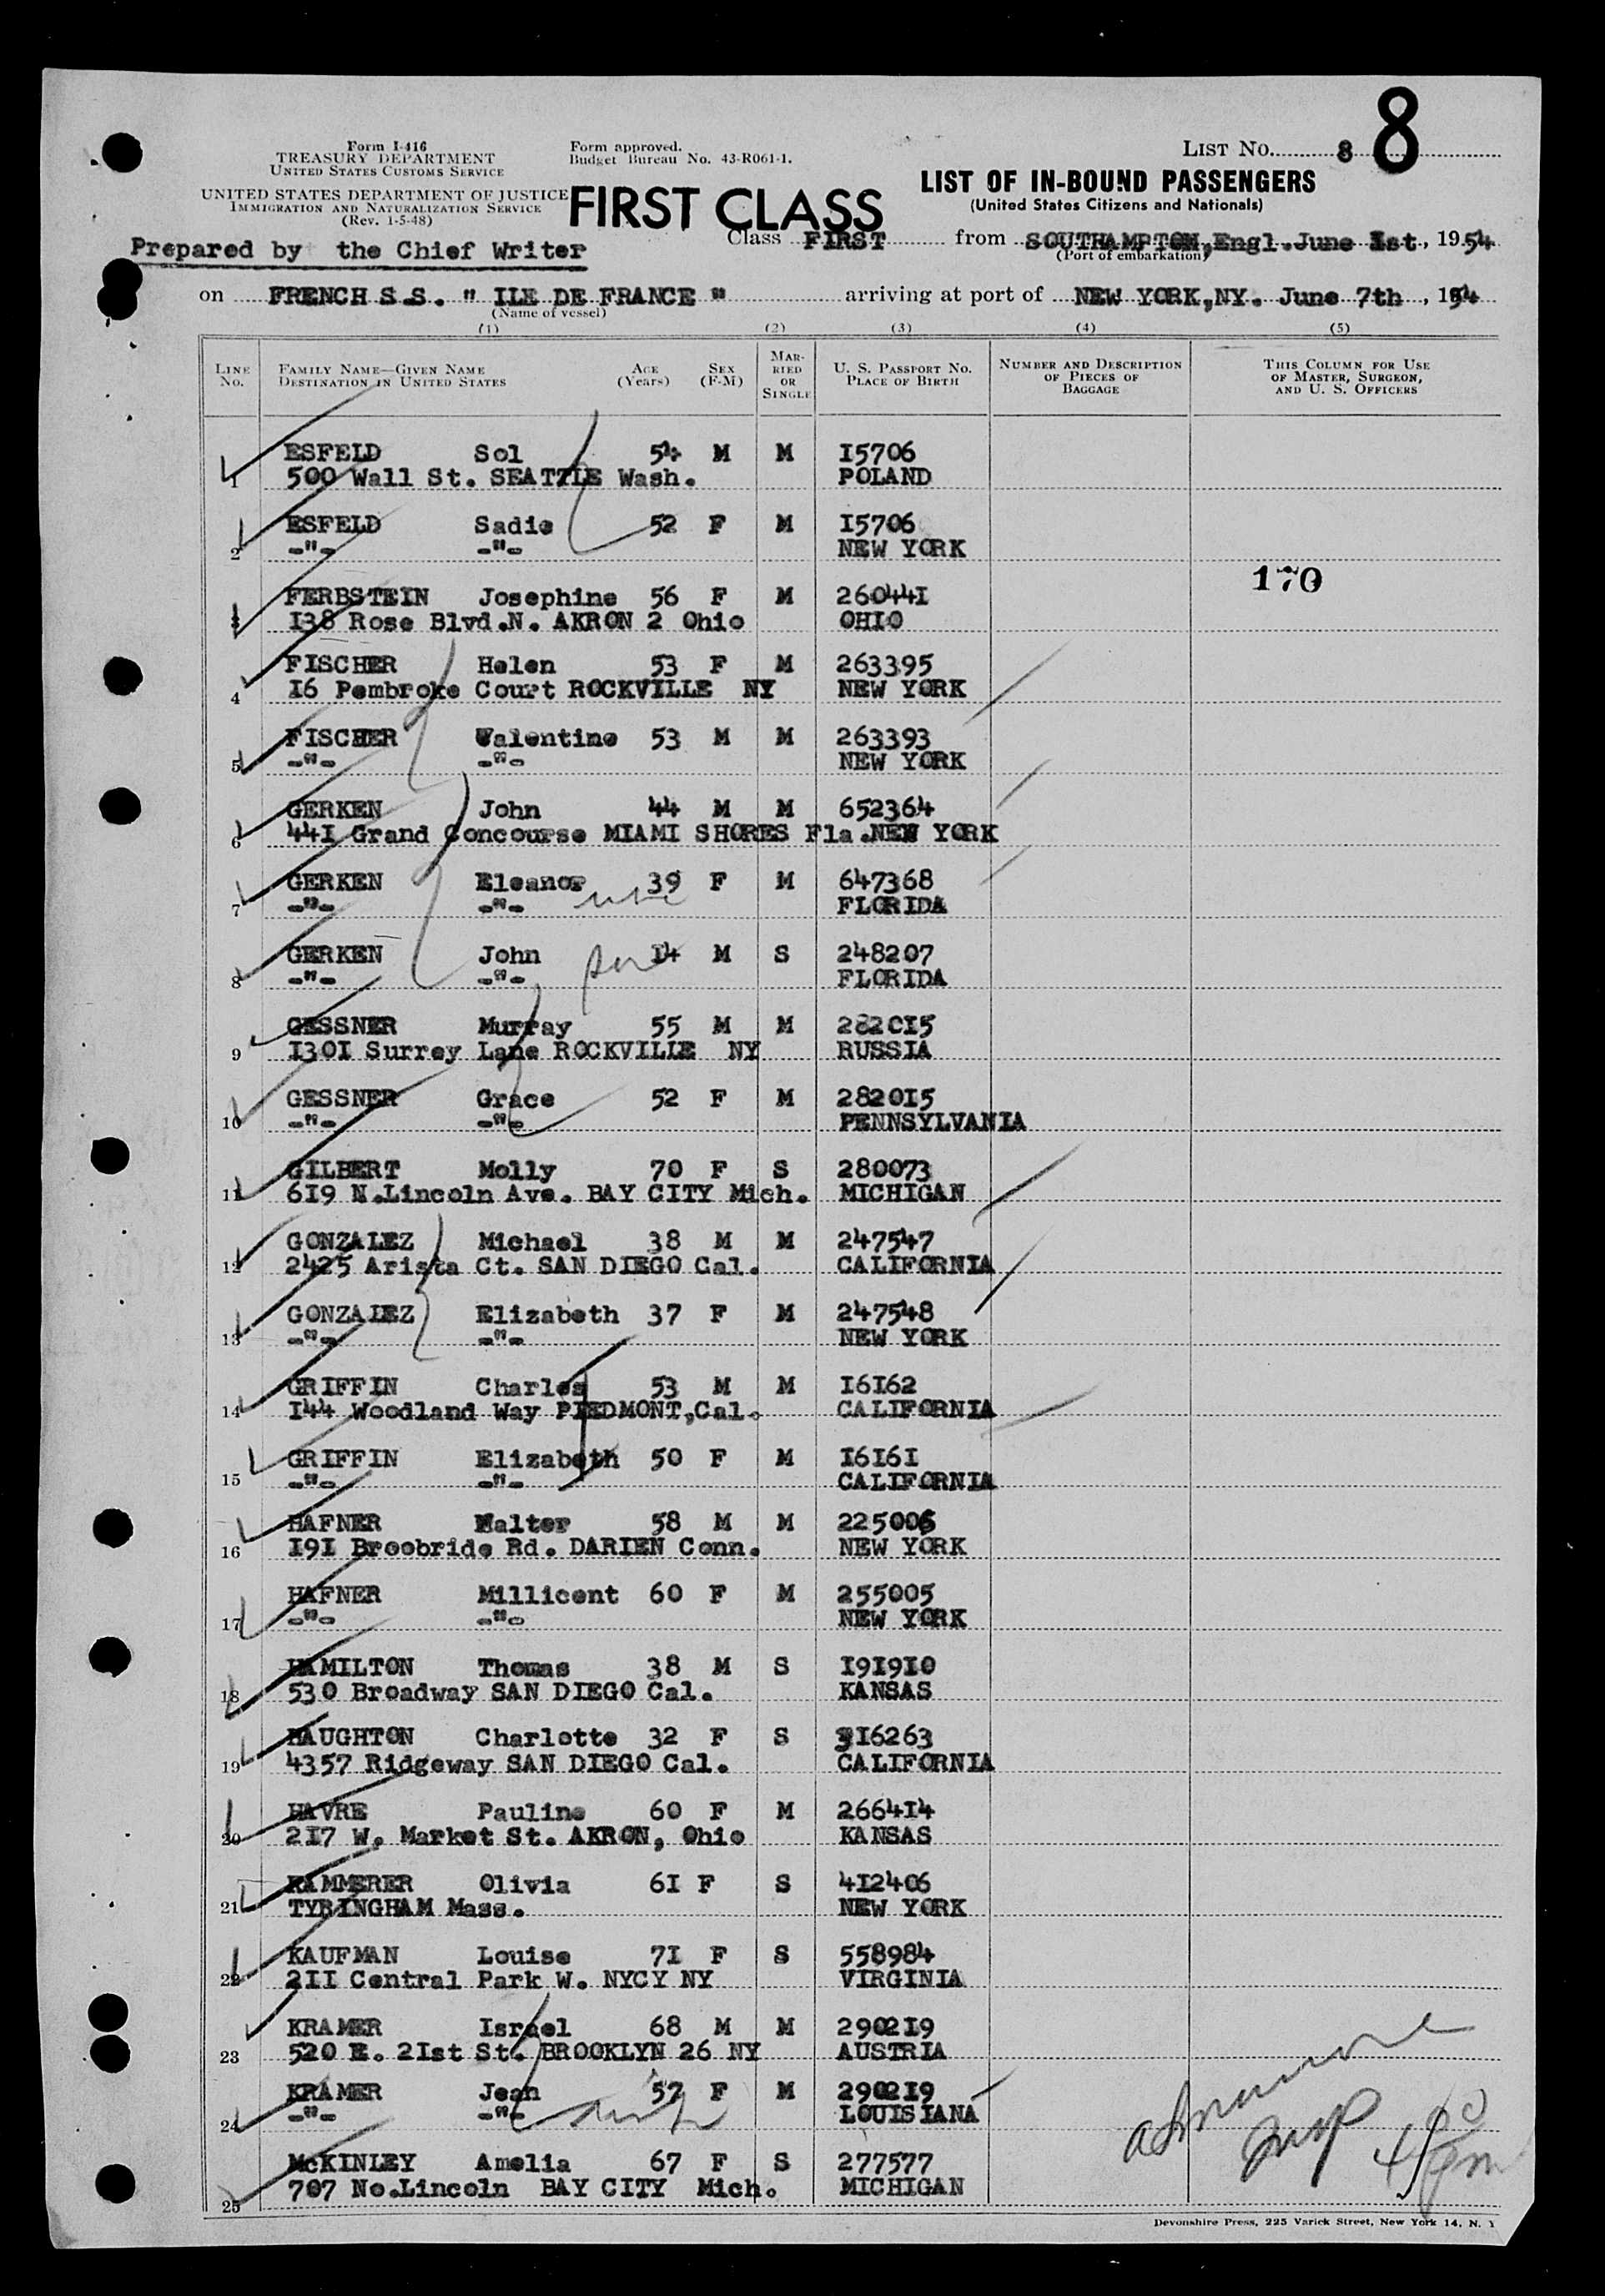 8
Form I-416
TREASURY DEPARTMENT
UNITED STATES CUSTOMS SERVICE
Form approved.
Budget Bureau No. 43-R061-1.
LIST NO. 8
UNITED STATES DEPARTMENT OF JUSTICE
IMMIGRATION AND NATURALIZATION SERVICE
(Rev. 1-5-48)
FIRST CLASS
LIST OF IN-BOUND PASSENGERS
(United States Citizens and Nationals)
Prepared by the Chief Writer
Class FIRST from SOUTHAMPTON, Engl. June Ist, 1954
(Port of embarkation)
on FRENCH S.S. " ILE DE FRANCE " arriving at port of NEW YORK, NY. June 7th, 1954
(Name of vessel)
(1) (2) (3) (4) (5)
LINE NO. FAMILY NAME—GIVEN NAME DESTINATION IN UNITED STATES AGE (Years) SEX (F-M) MARRIED OR SINGLE U. S. PASSPORT NO. PLACE OF BIRTH NUMBER AND DESCRIPTION OF PIECES OF BAGGAGE THIS COLUMN FOR USE OF MASTER, SURGEON, AND U. S. OFFICERS
ESFELD Sol 54 M M I5706
1 500 Wall St. SEATTLE Wash. POLAND
ESFELD Sadie 52 F M I5706
2 -"- -"- NEW YORK
170
FERBSTEIN Josephine 56 F M 26044I
3 I38 Rose Blvd.N. AKRON 2 Ohio OHIO
FISCHER Helen 53 F M 263395
4 I6 Pembroke Court ROCKVILLE NY NEW YORK
FISCHER Valentine 53 M M 263393
5 -"- -"- NEW YORK
GERKEN John 44 M M 652364
6 44I Grand Concourse MIAMI SHORES Fla. NEW YORK
GERKEN Eleanor 39 F M 647368
7 -"- -"- FLORIDA
GERKEN John I4 M S 248207
8 -"- -"- FLORIDA
GESSNER Murray 55 M M 282015
9 I30I Surrey Lane ROCKVILLE NY RUSSIA
GESSNER Grace 52 F M 282015
10 -"- -"- PENNSYLVANIA
GILBERT Molly 70 F S 280073
11 6I9 N.Lincoln Ave. BAY CITY Mich. MICHIGAN
GONZALEZ Michael 38 M M 247547
12 2425 Arista Ct. SAN DIEGO Cal. CALIFORNIA
GONZALEZ Elizabeth 37 F M 247548
13 -"- -"- NEW YORK
GRIFFIN Charles 53 M M I6I62
14 I44 Woodland Way PIEDMONT, Cal. CALIFORNIA
GRIFFIN Elizabeth 50 F M I6I6I
15 -"- -"- CALIFORNIA
HAFNER Walter 58 M M 225006
16 I9I Broobride Rd. DARIEN Conn. NEW YORK
HAFNER Millicent 60 F M 255005
17 -"- -"- NEW YORK
HAMILTON Thomas 38 M S I9I9I0
18 530 Broadway SAN DIEGO Cal. KANSAS
HAUGHTON Charlotte 32 F S 3I6263
19 4357 Ridgeway SAN DIEGO Cal. CALIFORNIA
HAVRE Pauline 60 F M 2664I4
20 2I7 W. Market St. AKRON, Ohio KANSAS
KAMMERER Olivia 6I F S 4I2406
21 TYRINGHAM Mass. NEW YORK
KAUFMAN Louise 7I F S 558984
22 2II Central Park W. NYCY NY VIRGINIA
KRAMER Israel 68 M M 2902I9
23 520 E. 2Ist St. BROOKLYN 26 NY AUSTRIA
KRAMER Jean 57 F M 2902I9
24 -"- -"- LOUISIANA
McKINLEY Amelia 67 F S 277577
25 707 No.Lincoln BAY CITY Mich. MICHIGAN
Devonshire Press, 225 Varick Street, New York 14, N. Y